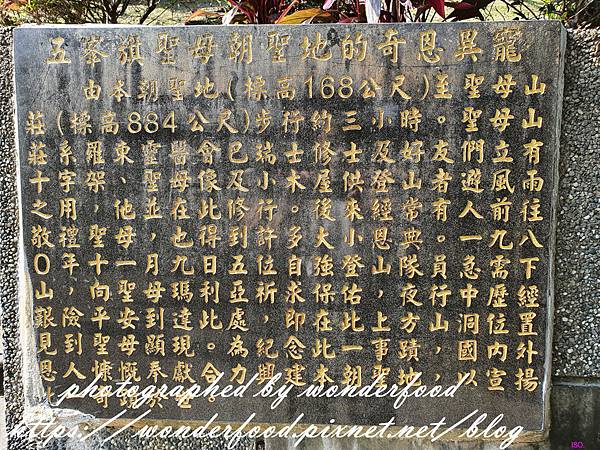 五峯旗聖母朝聖地的奇恩異寵
由本朝聖地(標高168公尺)至聖母山
莊(標高884公尺)步行約三小時。聖母山
莊系羅東靈醫會巳瑞士修士及好友們立有
十字架、聖母像及小木屋供登山者避風雨
之用,他並在此修行。後來經常有人前往
敬禮聖母,也得到許多大小恩典。一九八
0年十一月九日五位自強登山隊員急需下
山,向聖母瑪利亞祈求保佑,夜行中歷經
艱險平安到達此處,即在此上方山洞位置
見到聖母顯現。為紀念此一事蹟,國內外
恩人慷慨奉獻金力興建本朝聖地,以宣揚
photographed by wonderfood
https://wonderfood.pixnet.net/blog
ISO